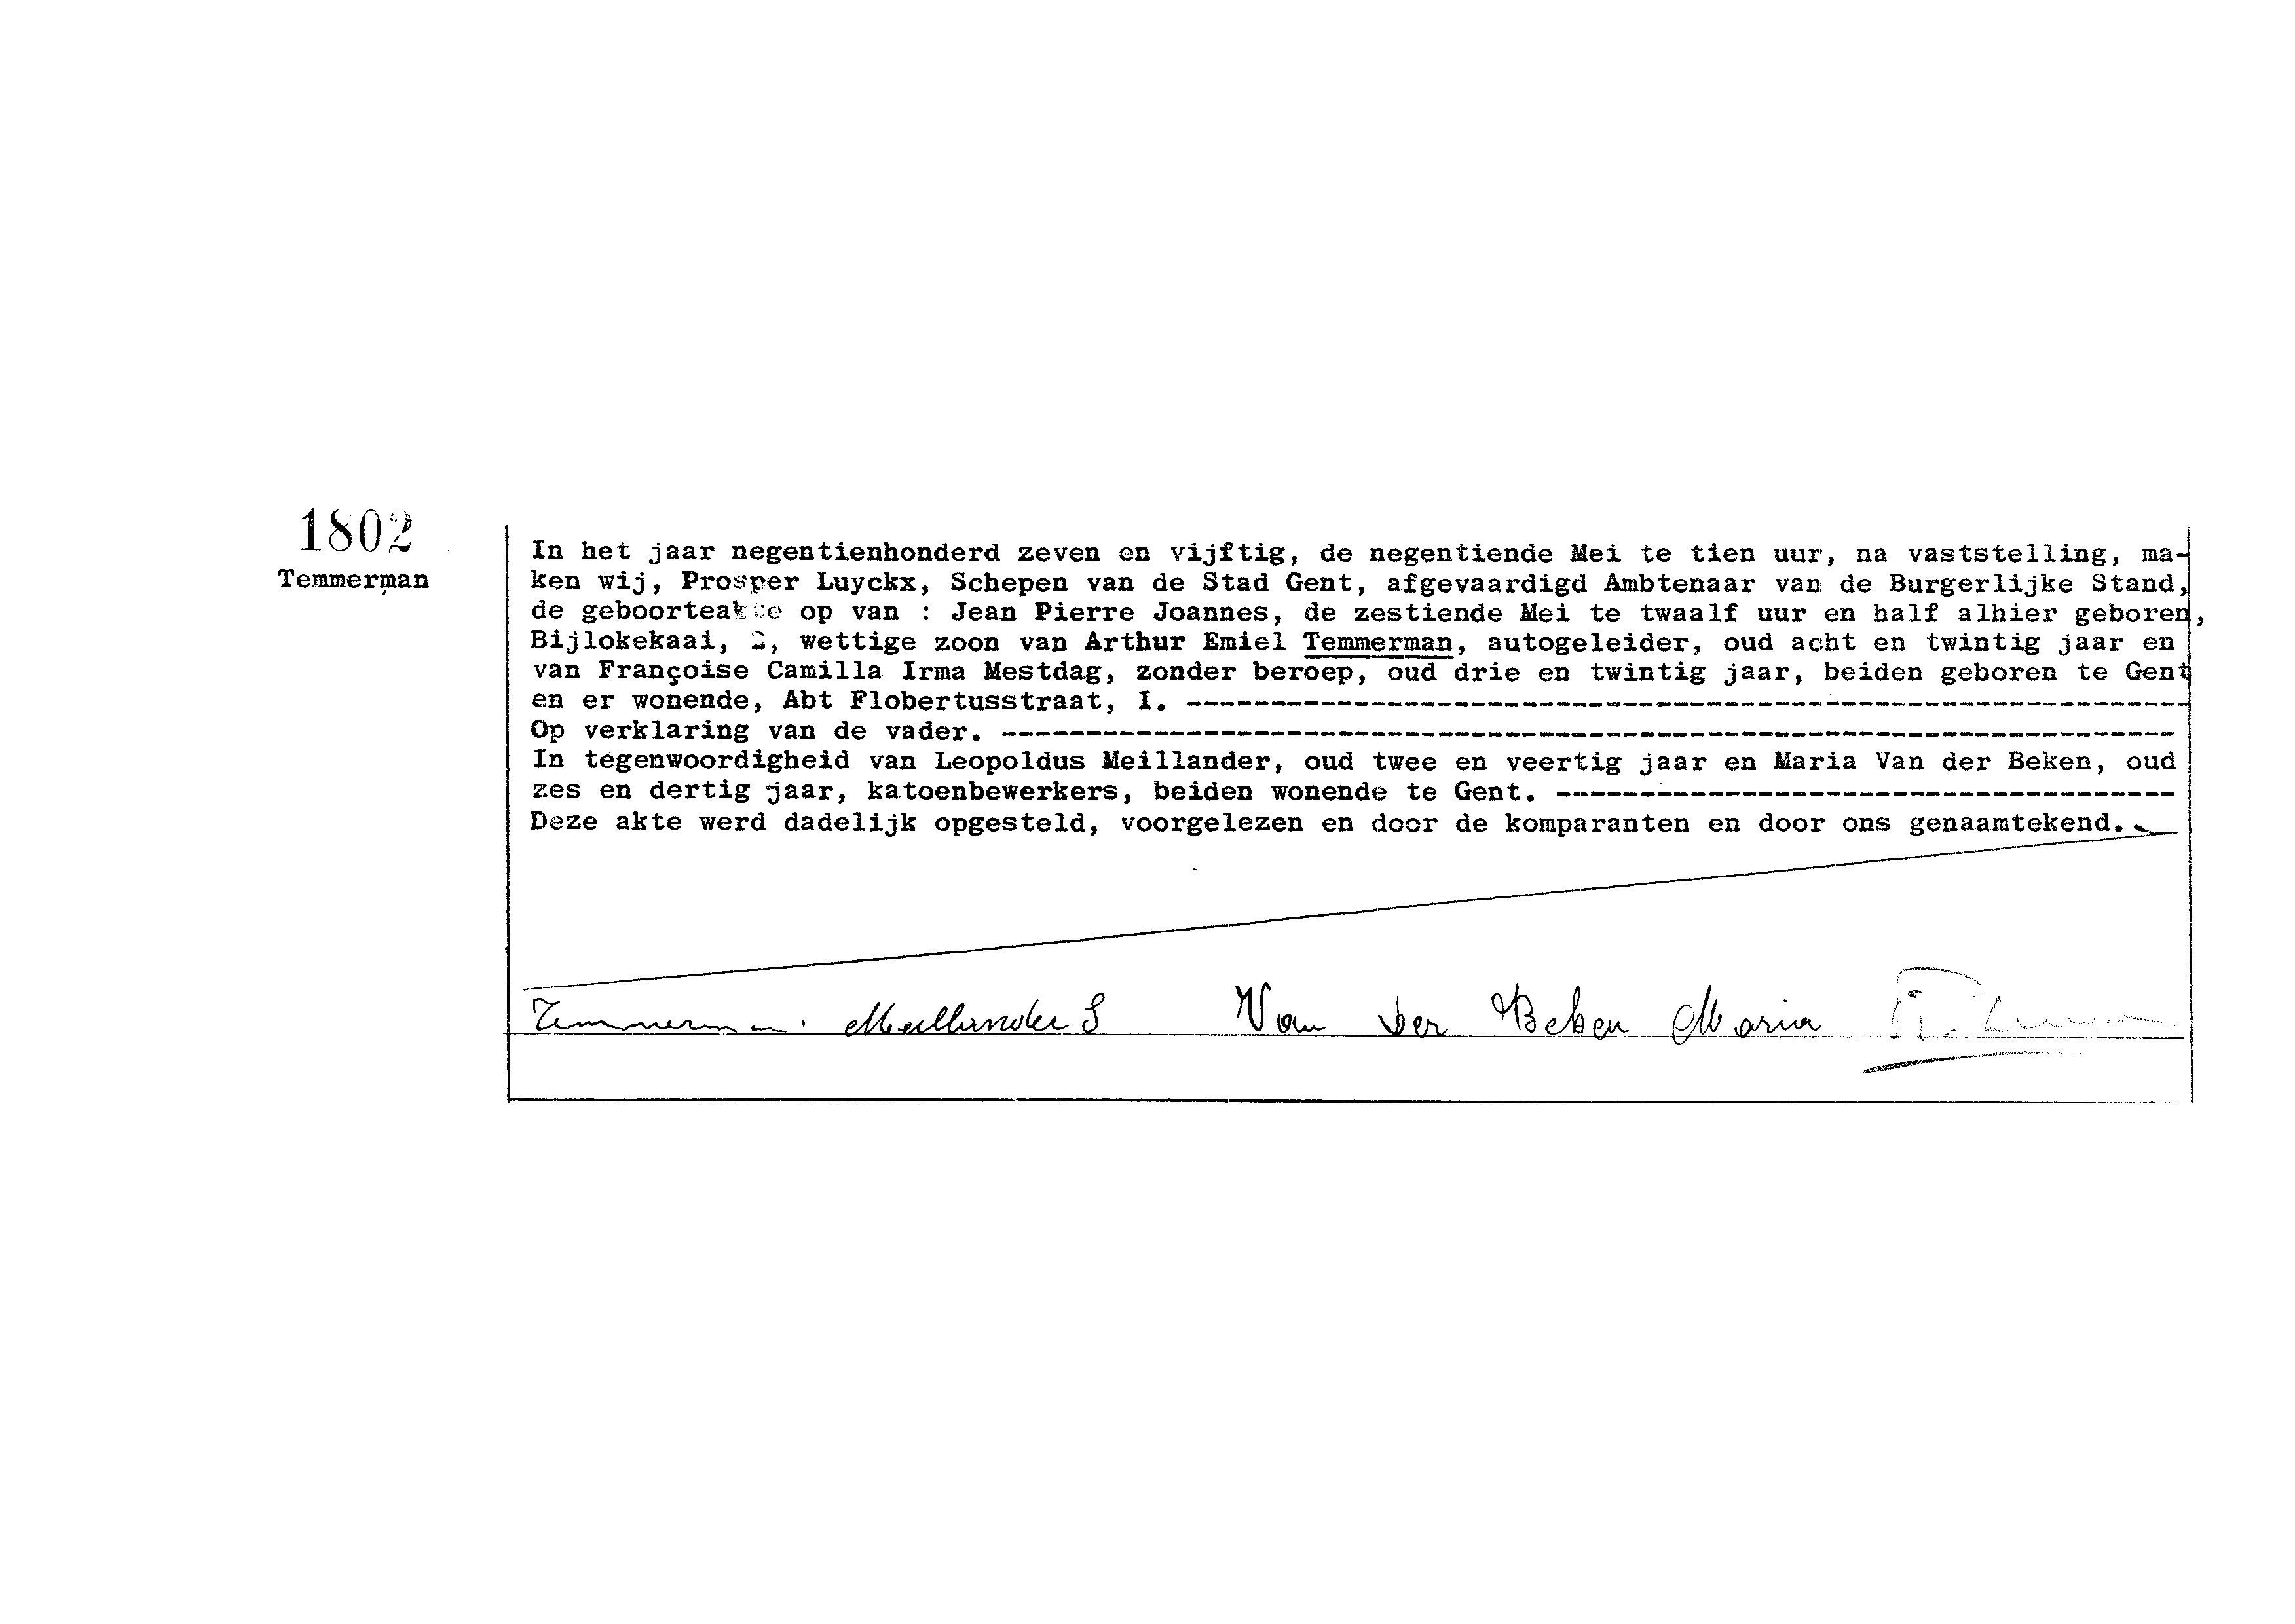 1802
Temmerman
In het jaar negentienhonderd zeven en vijftig, de negentiende Mei te tien uur, na vaststelling, ma-
ken wij, Prosper Luyckx, Schepen van de Stad Gent, afgevaardigd Ambtenaar van de Burgerlijke Stand,
de geboorteakte op van : Jean Pierre Joannes, de zestiende Mei te twaalf uur en half alhier geboren,
Bijlokekaai, 2, wettige zoon van Arthur Emiel Temmerman, autogeleider, oud acht en twintig jaar en
van Françoise Camilla Irma Mestdag, zonder beroep, oud drie en twintig jaar, beiden geboren te Gent
en er wonende, Abt Flobertusstraat, I. ------------------------------------------------------------
Op verklaring van de vader. ----------------------------------------------------------------------
In tegenwoordigheid van Leopoldus Meillander, oud twee en veertig jaar en Maria Van der Beken, oud
zes en dertig jaar, katoenbewerkers, beiden wonende te Gent. -------------------------------------
Deze akte werd dadelijk opgesteld, voorgelezen en door de komparanten en door ons genaamtekend.
Temmerman. Meillander Van der Beken Maria